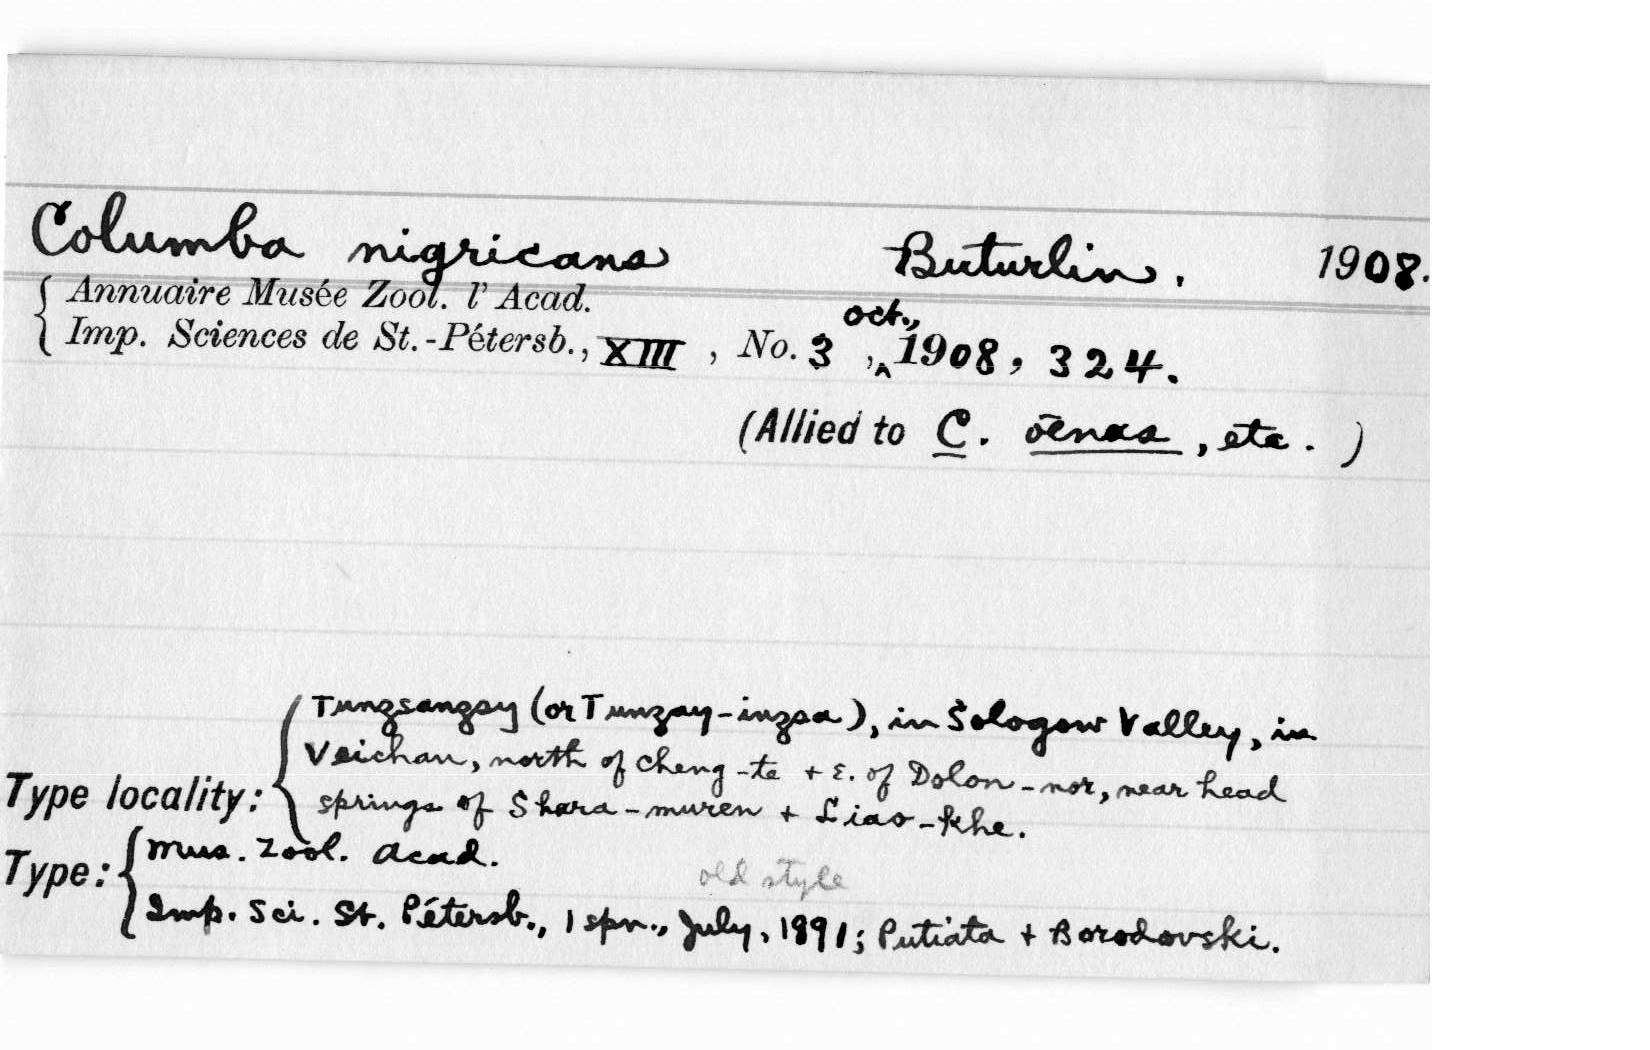 Columba nigricans Buturlin. 1908.
Annuaire Musée Zool. l' Acad.
oct.,
Imp. Sciences de St.-Pétersb., XIII, No. 3, 1908, 324.
(Allied to C. oenas, etc.)
Tungsangsy (or Tunzay-inzsa), in Sologow Valley, in
Veichan, north of Cheng-te + E. of Dolon-nor, near head
Type locality: springs of Shara-muren + Liao-Khe.
Type: Mus. Zool. Acad.
old style
Imp. Sci. St. Pétersb., 1 spn., July, 1891; Putiata + Borodovski.